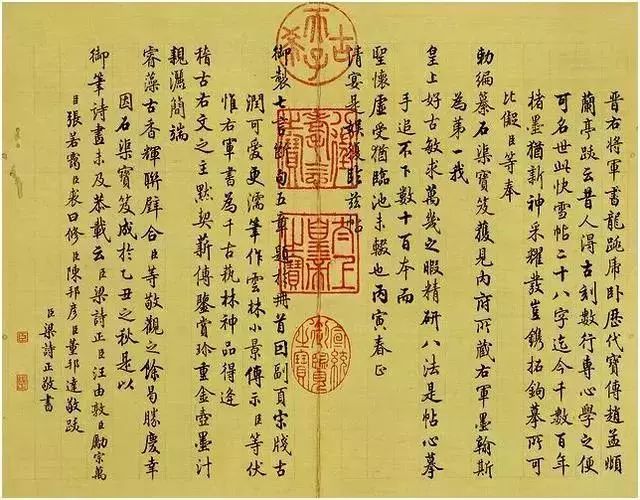 晉右將軍書龍跳虎卧歷代寶傳趙孟頫
蘭亭跋云昔人得古刻數行專心學之便
可名世此快雪帖二十八字迄今千數百年
楮墨猶新神采耀發豈鐫拓鉤摹所可
比儗臣等奉
勅編纂石渠寶笈獲見內府所藏右軍墨翰斯
為第一我
皇上好古敏求萬幾之暇精研八法是帖心摹
手追不下數十百本而
聖懷虛受猶臨池未輟也丙寅春正
清宴是娛復臨茲帖
御製七言斷句五章題於冊首因副頁宋牋古
潤可愛更濡筆作雲林小景傳示臣等伏
惟右軍書為千古秇林神品得逢
稽古右文之主默契薪傳鑒賞珍重金壺墨汁
親灑簡端
睿藻古香輝聯璧合臣等敬觀之餘曷勝慶幸
因石渠寶笈成於乙丑之秋是以
御筆詩畫未及恭載云臣梁詩正臣汪由敦臣勵宗萬
臣張若靄臣裘曰修臣陳邦彥臣董邦達敬跋
臣梁詩正敬書
古希天子
太上皇帝之寶
宣統御覽之寶